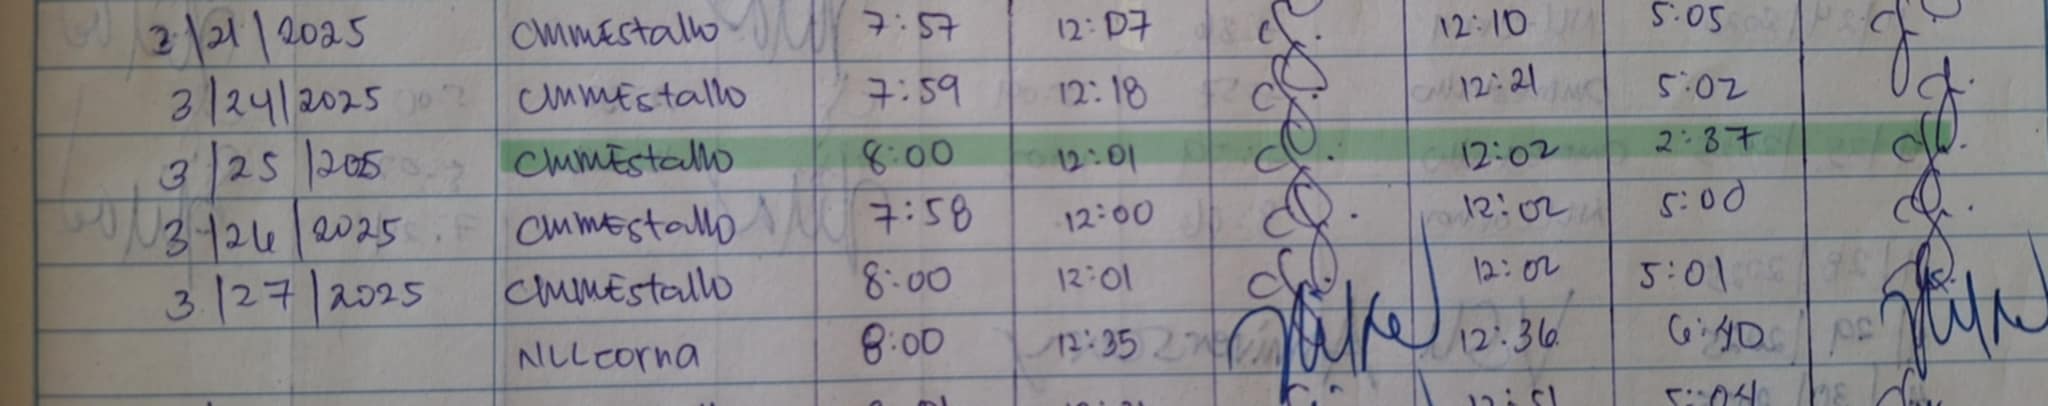 3/21/2025 CMMEstallo 7:57 12:07 12:10 5:05
3/24/2025 CMMEstallo 7:59 12:18 12:21 5:02
3/25/205 CMMEstallo 8:00 12:01 12:02 2:37
3/26/2025 CMMEstallo 7:58 12:00 12:02 5:00
3/27/2025 CMMEstallo 8:00 12:01 12:02 5:01
NLLcorna 8:00 12:35 12:36 6:40
12:51 5:04